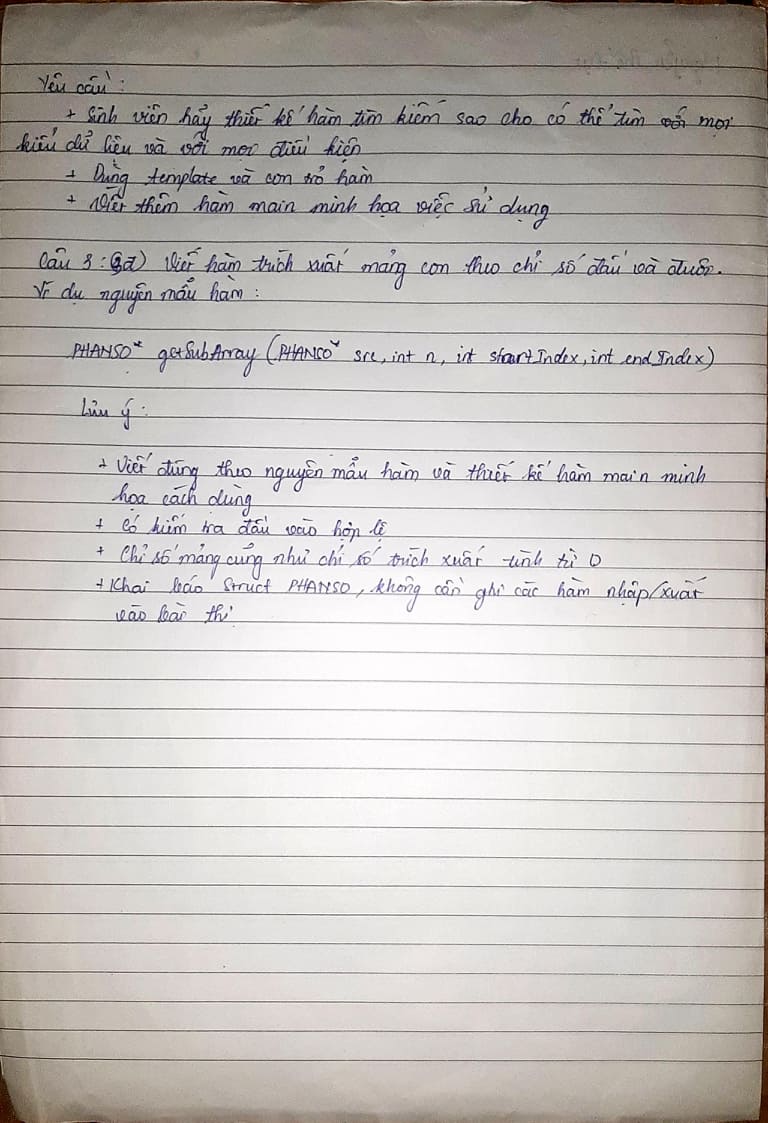 Yêu cầu:
+ Sinh viên hãy thiết kế hàm tìm kiếm sao cho có thể tìm với mọi
kiểu dữ liệu và với mọi điều kiện
+ Dùng template và con trỏ hàm
+ Viết thêm hàm main minh họa việc sử dụng
Câu 3: (3đ) Viết hàm trích xuất mảng con theo chỉ số đầu và đuôi.
Ví dụ nguyên mẫu hàm:
PHANSO* getSubArray (PHANSO* src, int n, int startIndex, int endIndex)
Lưu ý:
+ Viết đúng theo nguyên mẫu hàm và thiết kế hàm main minh
họa cách dùng
+ Có kiểm tra đầu vào hợp lệ
+ Chỉ số mảng cũng như chỉ số trích xuất tính từ 0
+ Khai báo struct PHANSO, không cần ghi các hàm nhập/xuất
vào bài thi